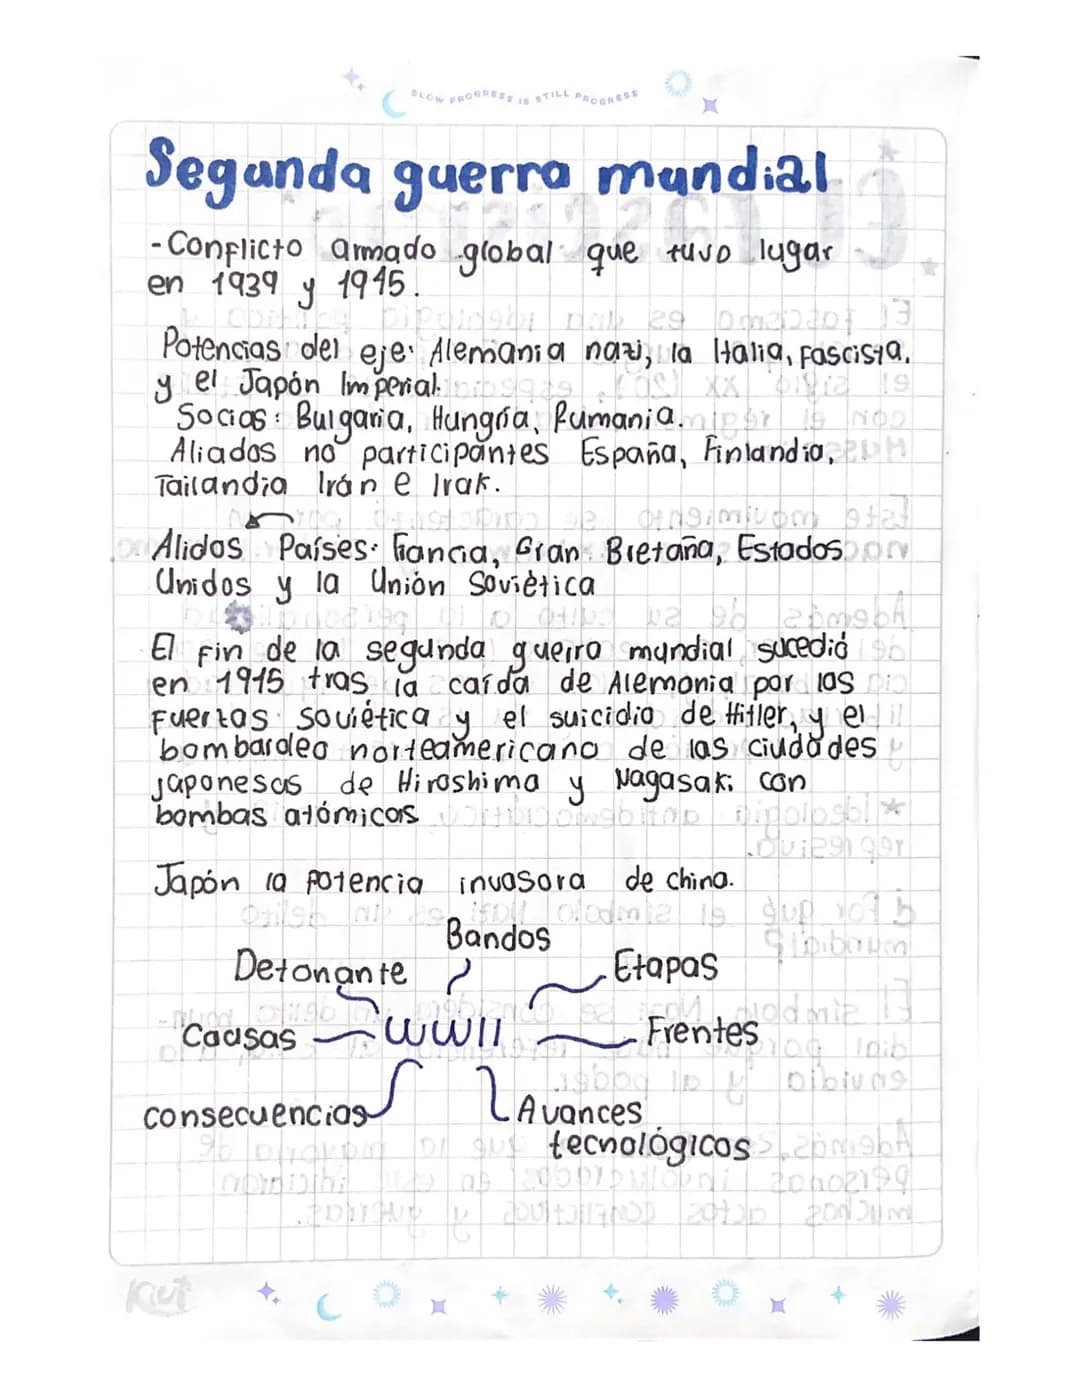 SLOW PROGRESS IS STILL PROGRESS
Segunda guerra mundial
-Conflicto armado global que tuvo lugar
en 1939 y 1945.
Potencias del eje: Alemania nazi, la Italia, fascista,
y el Japón Imperial.
Socios: Bulgaria, Hungría, Rumania.
Aliados no participantes España, Finlandia,
Tailandia Irán e Irak.
Alidos Países: Francia, Gran Bretaña, Estados
Unidos y la Unión Soviética
El fin de la segunda guerra mundial sucedió
en 1945 tras la caída de Alemania por las
fuertas soviética y el suicidio de Hitler, y el
bombardeo norteamericano de las ciudades
japonesas de Hiroshima y Nagasaki con
bombas atómicas
Japón la potencia invasora de china.
Bandos
Detonante
Etapas
Causas
WWII
Frentes
consecuencias
Avances
tecnológicos
Kiut